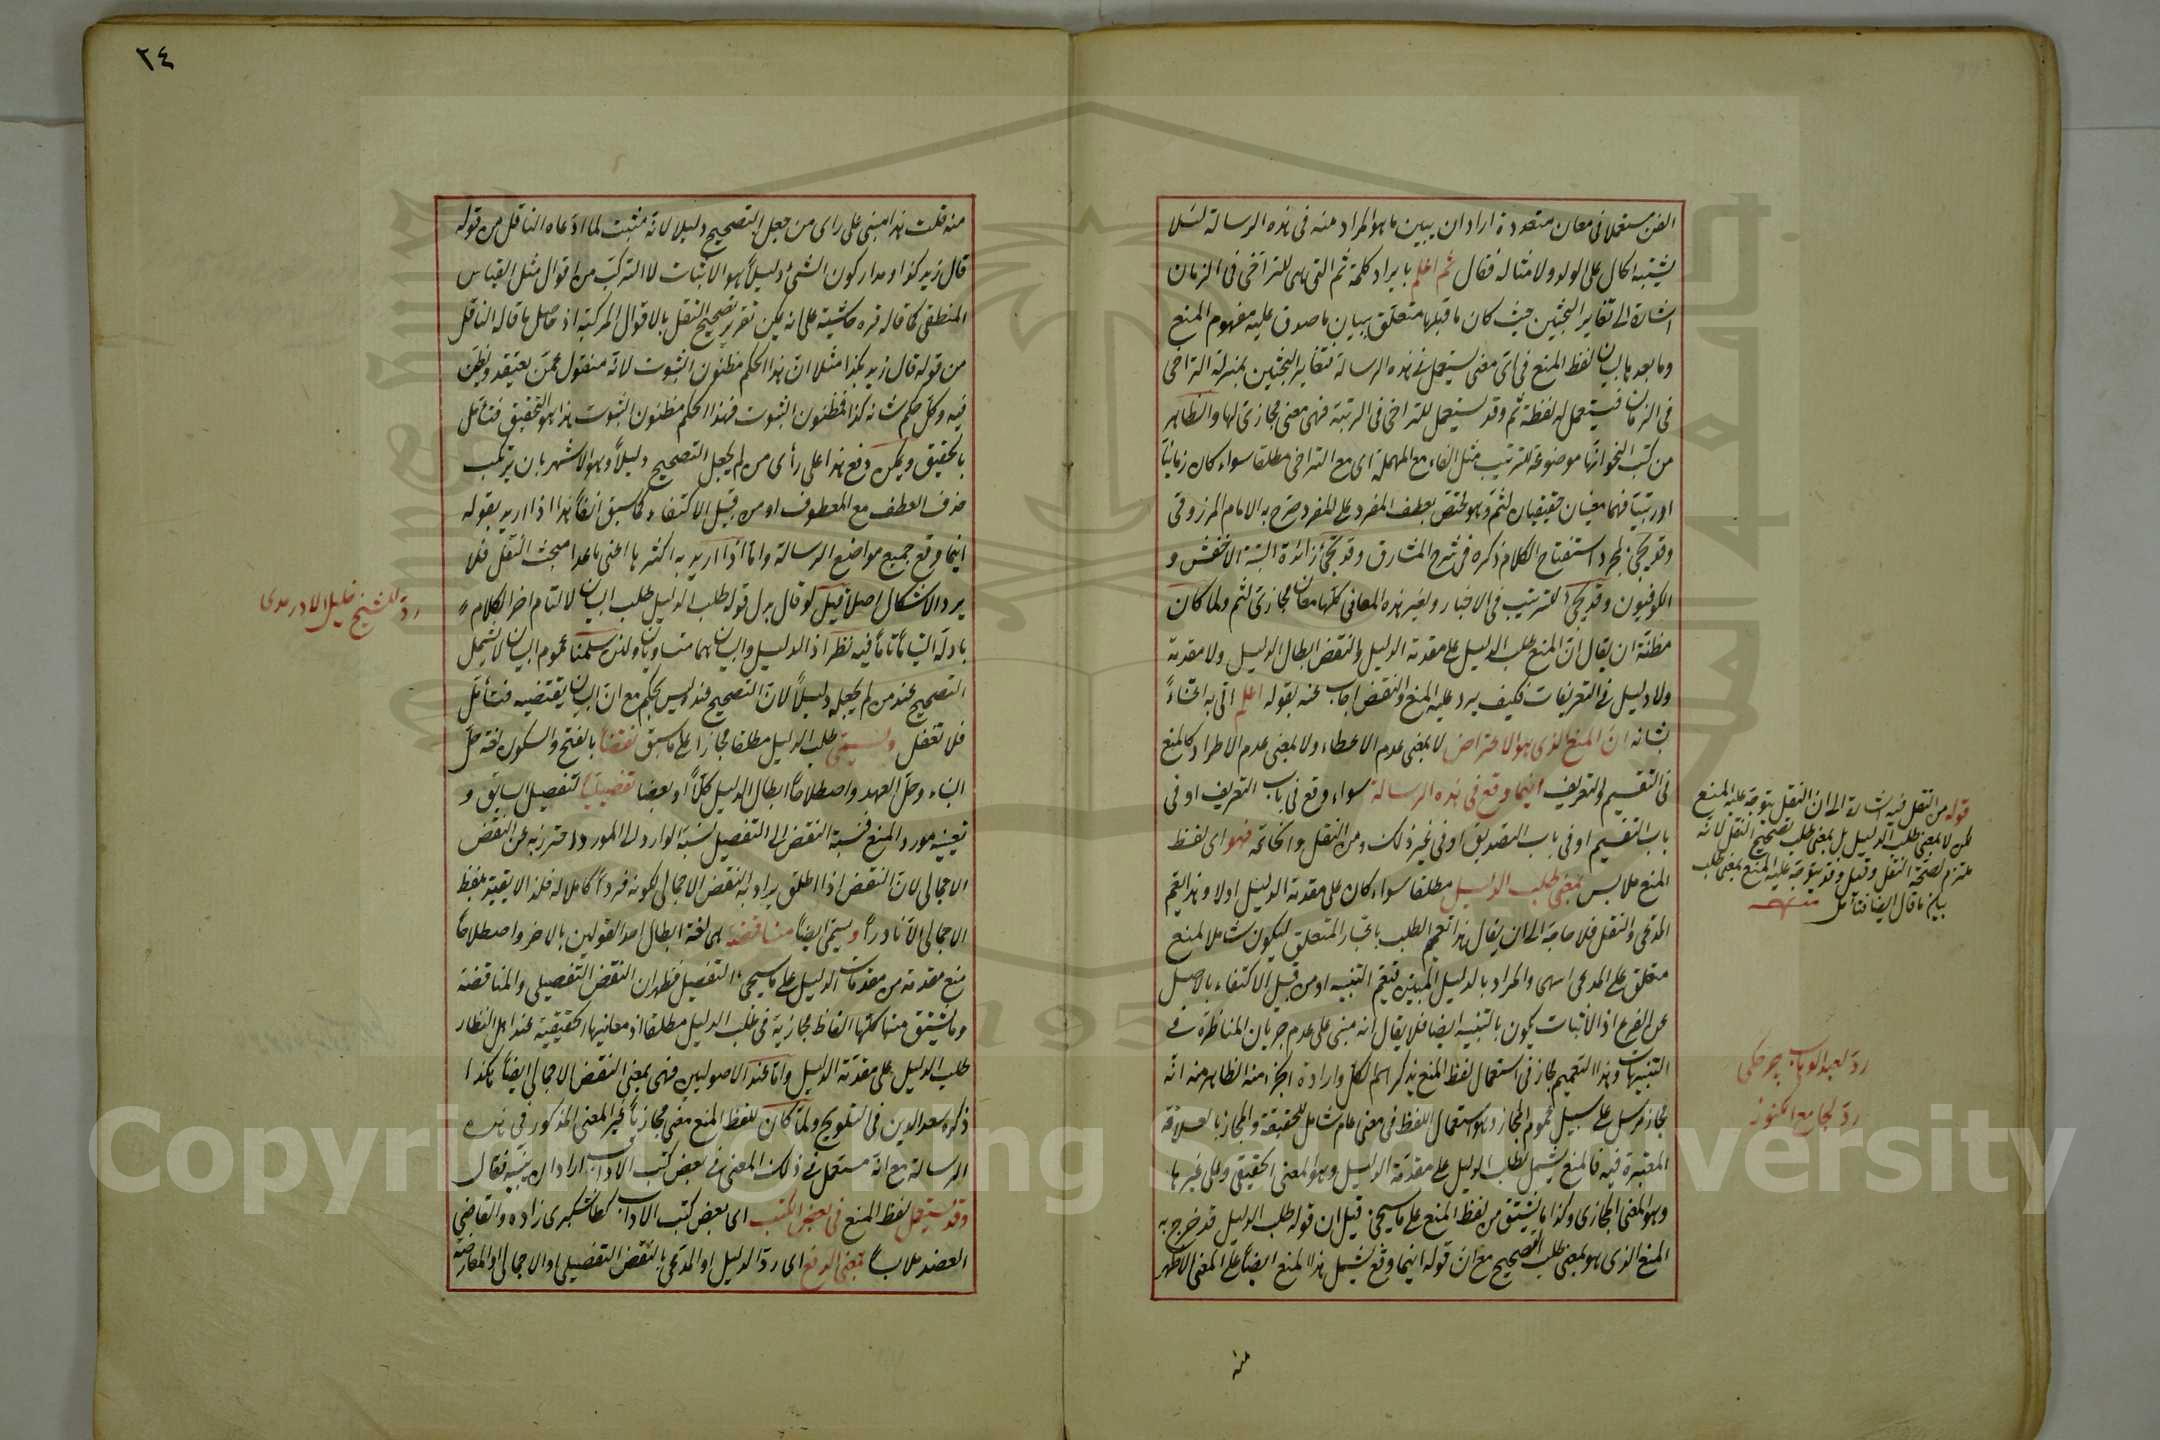 الفن مستعملا في معان متعددة اراد ان يبين ما هو المراد منه في هذه الرسالة لئلا
يشتبه الحال على الولد ولامثاله فقال ثم اعلم بايراد كلمة ثم التي هي للتراخي في الزمان
اشارة الى تغاير البحثين حيث كان ما قبلها متعلق ببيان ما صدق عليه مفهوم المنع
وما بعدها بيان لفظ المنع في اي معنى يستعمل في هذه الرسالة فتغاير البحثين بمنزلة التراخي
في الزمان فيستعمل له لفظة ثم وقد يستعمل للتراخي في الرتبة فهي معنى مجازي لها والظاهر
من كتب النحو انها موضوعة للترتيب مثل الفاء مع المهملة اي مع التراخي مطلقا سواء كان زمانيا
او رتبيا فهما معنيان حقيقيان لثم وهو مختص بعطف المفرد على المفرد صرح به الامام المرزوقي
وقد يجئ لمجرد استفتاح الكلام ذكره في شرح المشارق وقد يجئ زائدة البتة الاخفش و
الكوفيون وقد يجئ للترتيب في الاخبار ولغير هذه المعاني كلها معان مجازي لثم ولما كان
مظنة ان يقال ان المنع طلب الدليل على مقدمة الدليل والنقض ابطال الدليل ولا مقدمة
ولا دليل في التعريفات فكيف يرد عليه المنع والنقض اجاب عنه بقوله اعلم اتى به اعتناءً
بشانه ان المنع الذي هو الاعتراض لا بمعنى عدم الاعطاء ولا بمعنى عدم الاطراد كالمنع
في التقسيم والتعريف اينما وقع في هذه الرسالة سواء وقع في باب التعريف او في
باب التقسيم او في باب التصديق او في غير ذلك ومن النقل والحاتمه فهو اي لفظ
المنع ملابس بمعنى طلب الدليل مطلقا سواء كان على مقدمة الدليل اولا وهذا التعميم
المدعى والنقل فلا حاجة الى ان يقال هذا تعميم الطلب باعتبار المتعلق ليكون شاملا لمنع
متعلق على المدعى انتهى والمراد بالدليل المبين فيعم التنبيه او من قبيل الاكتفاء بالاصل
عن الفرع اذ الاثبات يكون بالتنبيه ايضا فلا يقال انه مبني على عدم جريان المناظرة في
التنبيهات وهذا التعميم مجاز في استعمال لفظ المنع بذكر اسم الكل وارادة الجزء منه الظاهر منه انه
مجاز مرسل على سبيل عموم المجاز وهو استعمال اللفظ في معنى عام شامل للحقيقة والمجاز بالعلاقة
المعتبرة فيه فالمنع يشمل لطلب الدليل على مقدمة الدليل وهو المعنى الحقيقي وعلى غيرها
وهو المعنى المجازي وكذا ما يشتق من لفظ المنع على ما سيجئ قيل ان قوله طلب الدليل قد خرج به
المنع الذي هو بمعنى طلب التصحيح مع ان قوله اينما وقع يشمل هذا المنع ايضا على المعنى الاظهر
منه
قوله من النقل فيه اشارة الى ان النقل يتوجه عليه المنع
لكن لا بمعنى طلب الدليل بل بمعنى طلب تصحيح النقل لانه
ملتزم لصحة النقل وقيل وقد يتوجه عليه المنع بمعنى طلب
بيان ما قال ايضا فتأمل منه
ردّ لعبد الوهاب
ردّ لجامع الكنوز
٢٤
منه قلت هذا مبني على راى من جعل التصحيح دليلا لانه مثبت لما ادعاه الناقل من قوله
قال زيد كذا ومدار كون الشئ دليلاً هو الاثبات لا التركب من اقوال مثل القياس
المنطقي كما قاله قره حاشيه على انه يمكن تقرير تصحيح النقل بالاقوال المركبة اذ حاصل ما قاله الناقل
من قوله قال زيد هكذا مثلا ان هذا الحكم مظنون الثبوت لانه منقول عمن يعتقد ويظن
فيه وكل حكم شانه كذا فمظنون الثبوت فهذا الحكم مظنون الثبوت هذا هو التحقيق فتأمل
بالتحقيق ويمكن دفع هذا على رأى من لم يجعل التصحيح دليلاً وهو الاشهر بان يرتكب
حذف العطف مع المعطوف او من قبيل الاكتفاء كما سبق آنفاً هذا اذا اريد بقوله
اينما وقع جميع مواضع الرسالة واما اذا اريد به اكثرها اعني ما عدا مبحث النقل فلا
يرد الاشكال اصلا قيل لو قال بدل قوله طلب الدليل طلب البيان لالتام اخر الكلام
باوله التياماً تاماً فيه نظر اذ الدليل والبيان هما متساويان ولئن سلمنا عموم البيان لا يشمل
التصحيح عند من لم يجعله دليلاً لان التصحيح عنده ليس بحكم مع ان البيان يقتضيه فتأمل
فلا تغفل ويسمى طلب الدليل مطلقا مجازا على ما سبق نقضا بالفتح والسكون لغة حل
البناء وحل العهد واصطلاحاً ابطال الدليل كلاً او بعضا تفصيليا لتفصيل السابق و
تعيينه مورد المنع فنسبة النقض الى التفصيل نسبة الوارد الى المورد احترز به عن النقض
الاجمالي لان النقض اذا اطلق يراد به النقض الاجمالي لكونه فرداً كاملا له فلذا لا يقيد بلفظ
الاجمالي الا نادراً ويسمى ايضاً مناقضة هى لغة ابطال احد القولين بالاخر واصطلاحاً
منع مقدمة من مقدمات الدليل على ما سيجئ التفصيل فظهر ان النقض التفصيلي والمناقضة
وما يشتق منها كلها الفاظ مجازية في طلب الدليل مطلقا اذ معانيها الحقيقية عند اهل النظار
طلب الدليل على مقدمة الدليل واما عند الاصوليين فهى بمعنى النقض الاجمالي ايضاً هكذا
ذكره سعد الدين في التلويح ولما كان للفظ المنع معنى مجازياً غير المعنى المذكور في هذه
الرسالة مع انه مستعمل في ذلك المعنى في بعض كتب الاداب اراد ان يبينه فقال
وقد يستعمل لفظ المنع في بعض الكتب اى بعض كتب الاداب كطاشكبرى زاده والقاضى
العضد ملابساً بمعنى الدفع اى ردّ الدليل او المدعى بالنقض التفصيلي او الاجمالي او المعارضة
ردّ للشيخ خليل